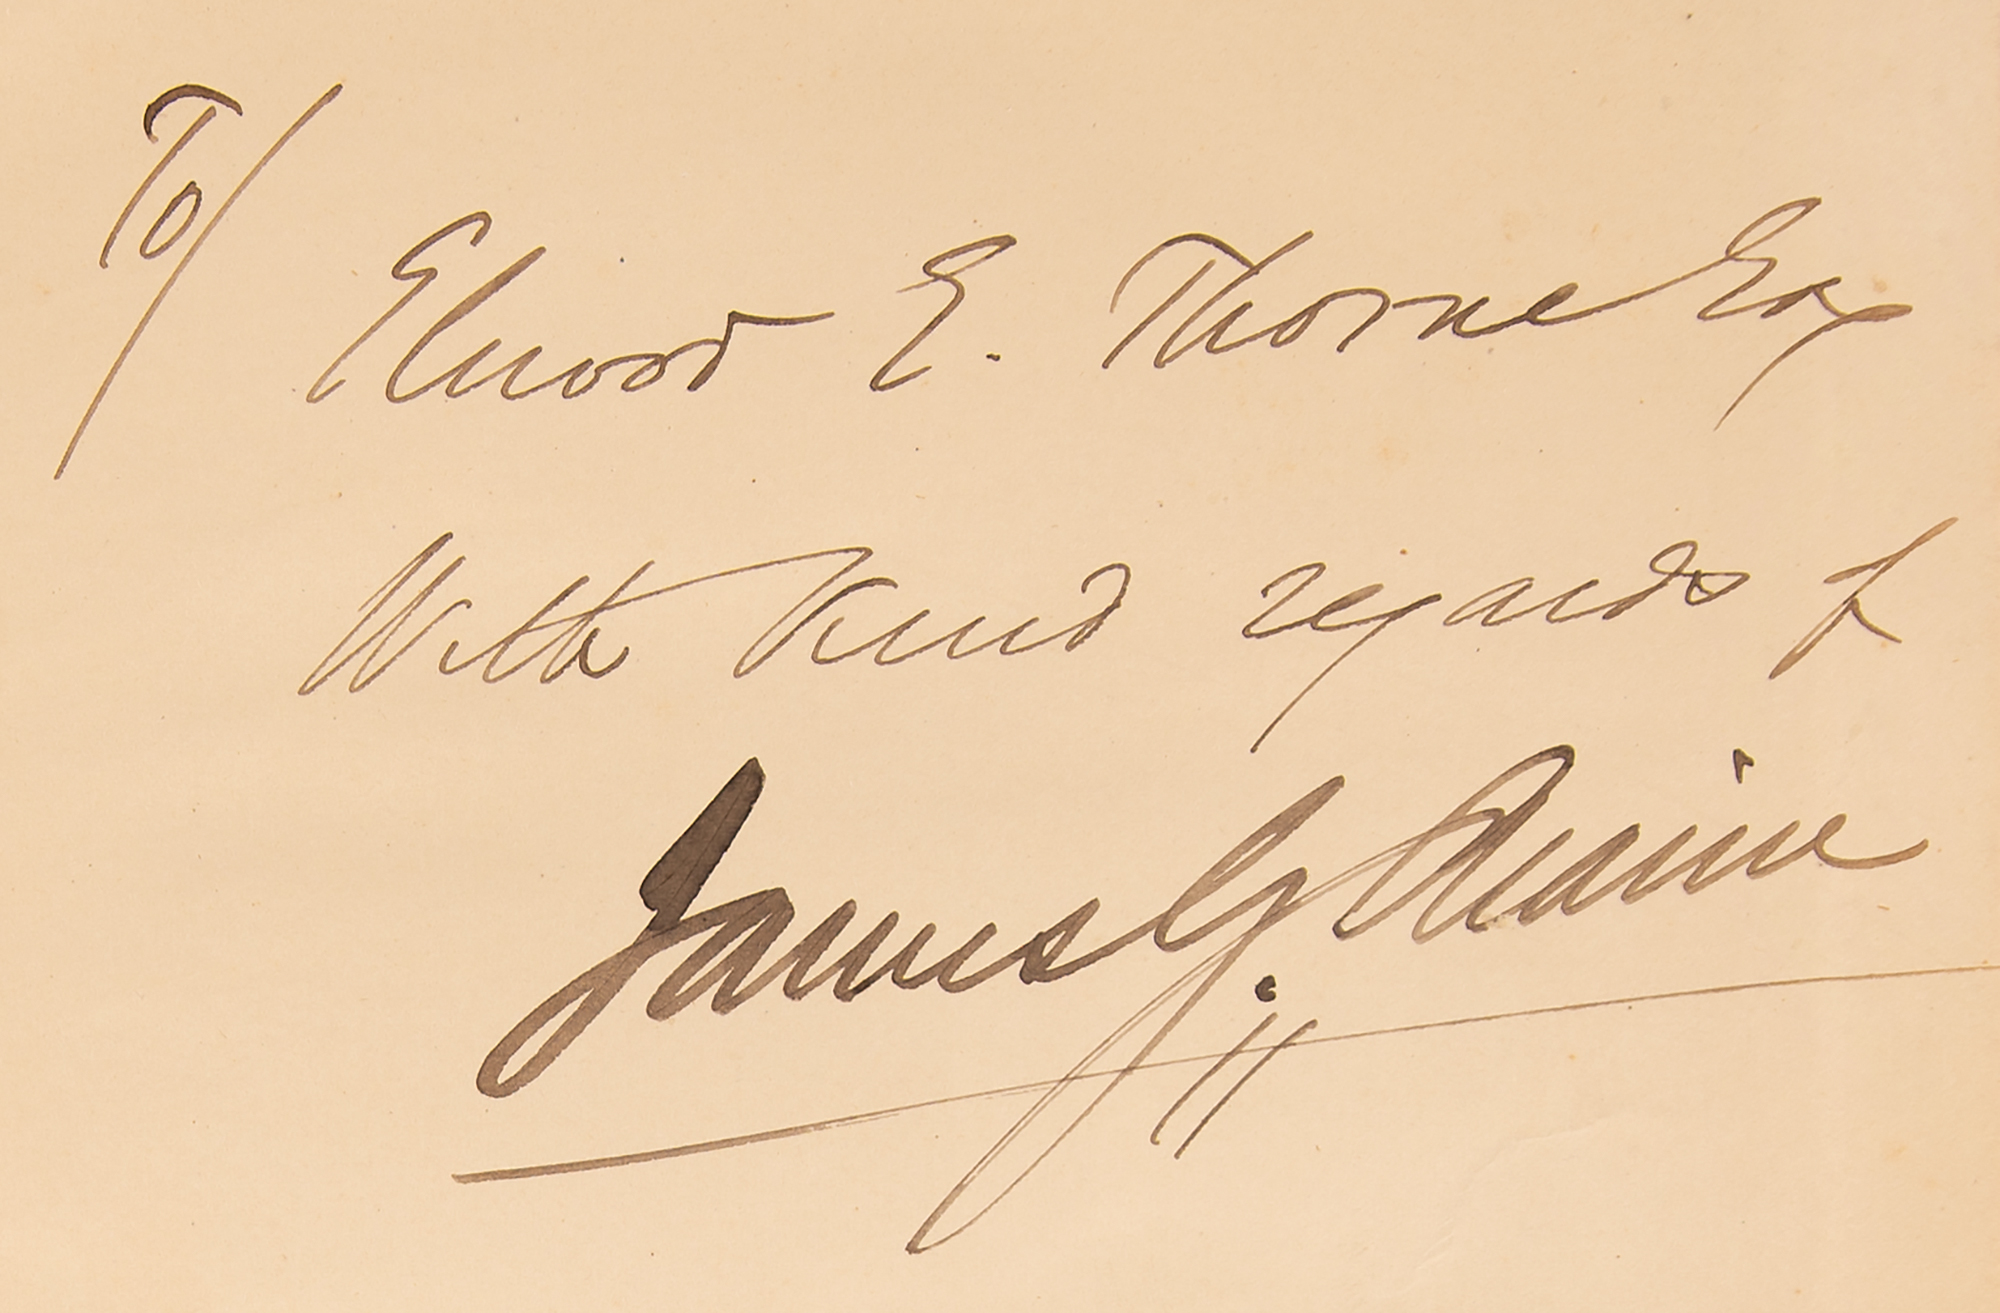 To/
Elwood E. Thorne Esq
With kind regards of
James G. Blaine